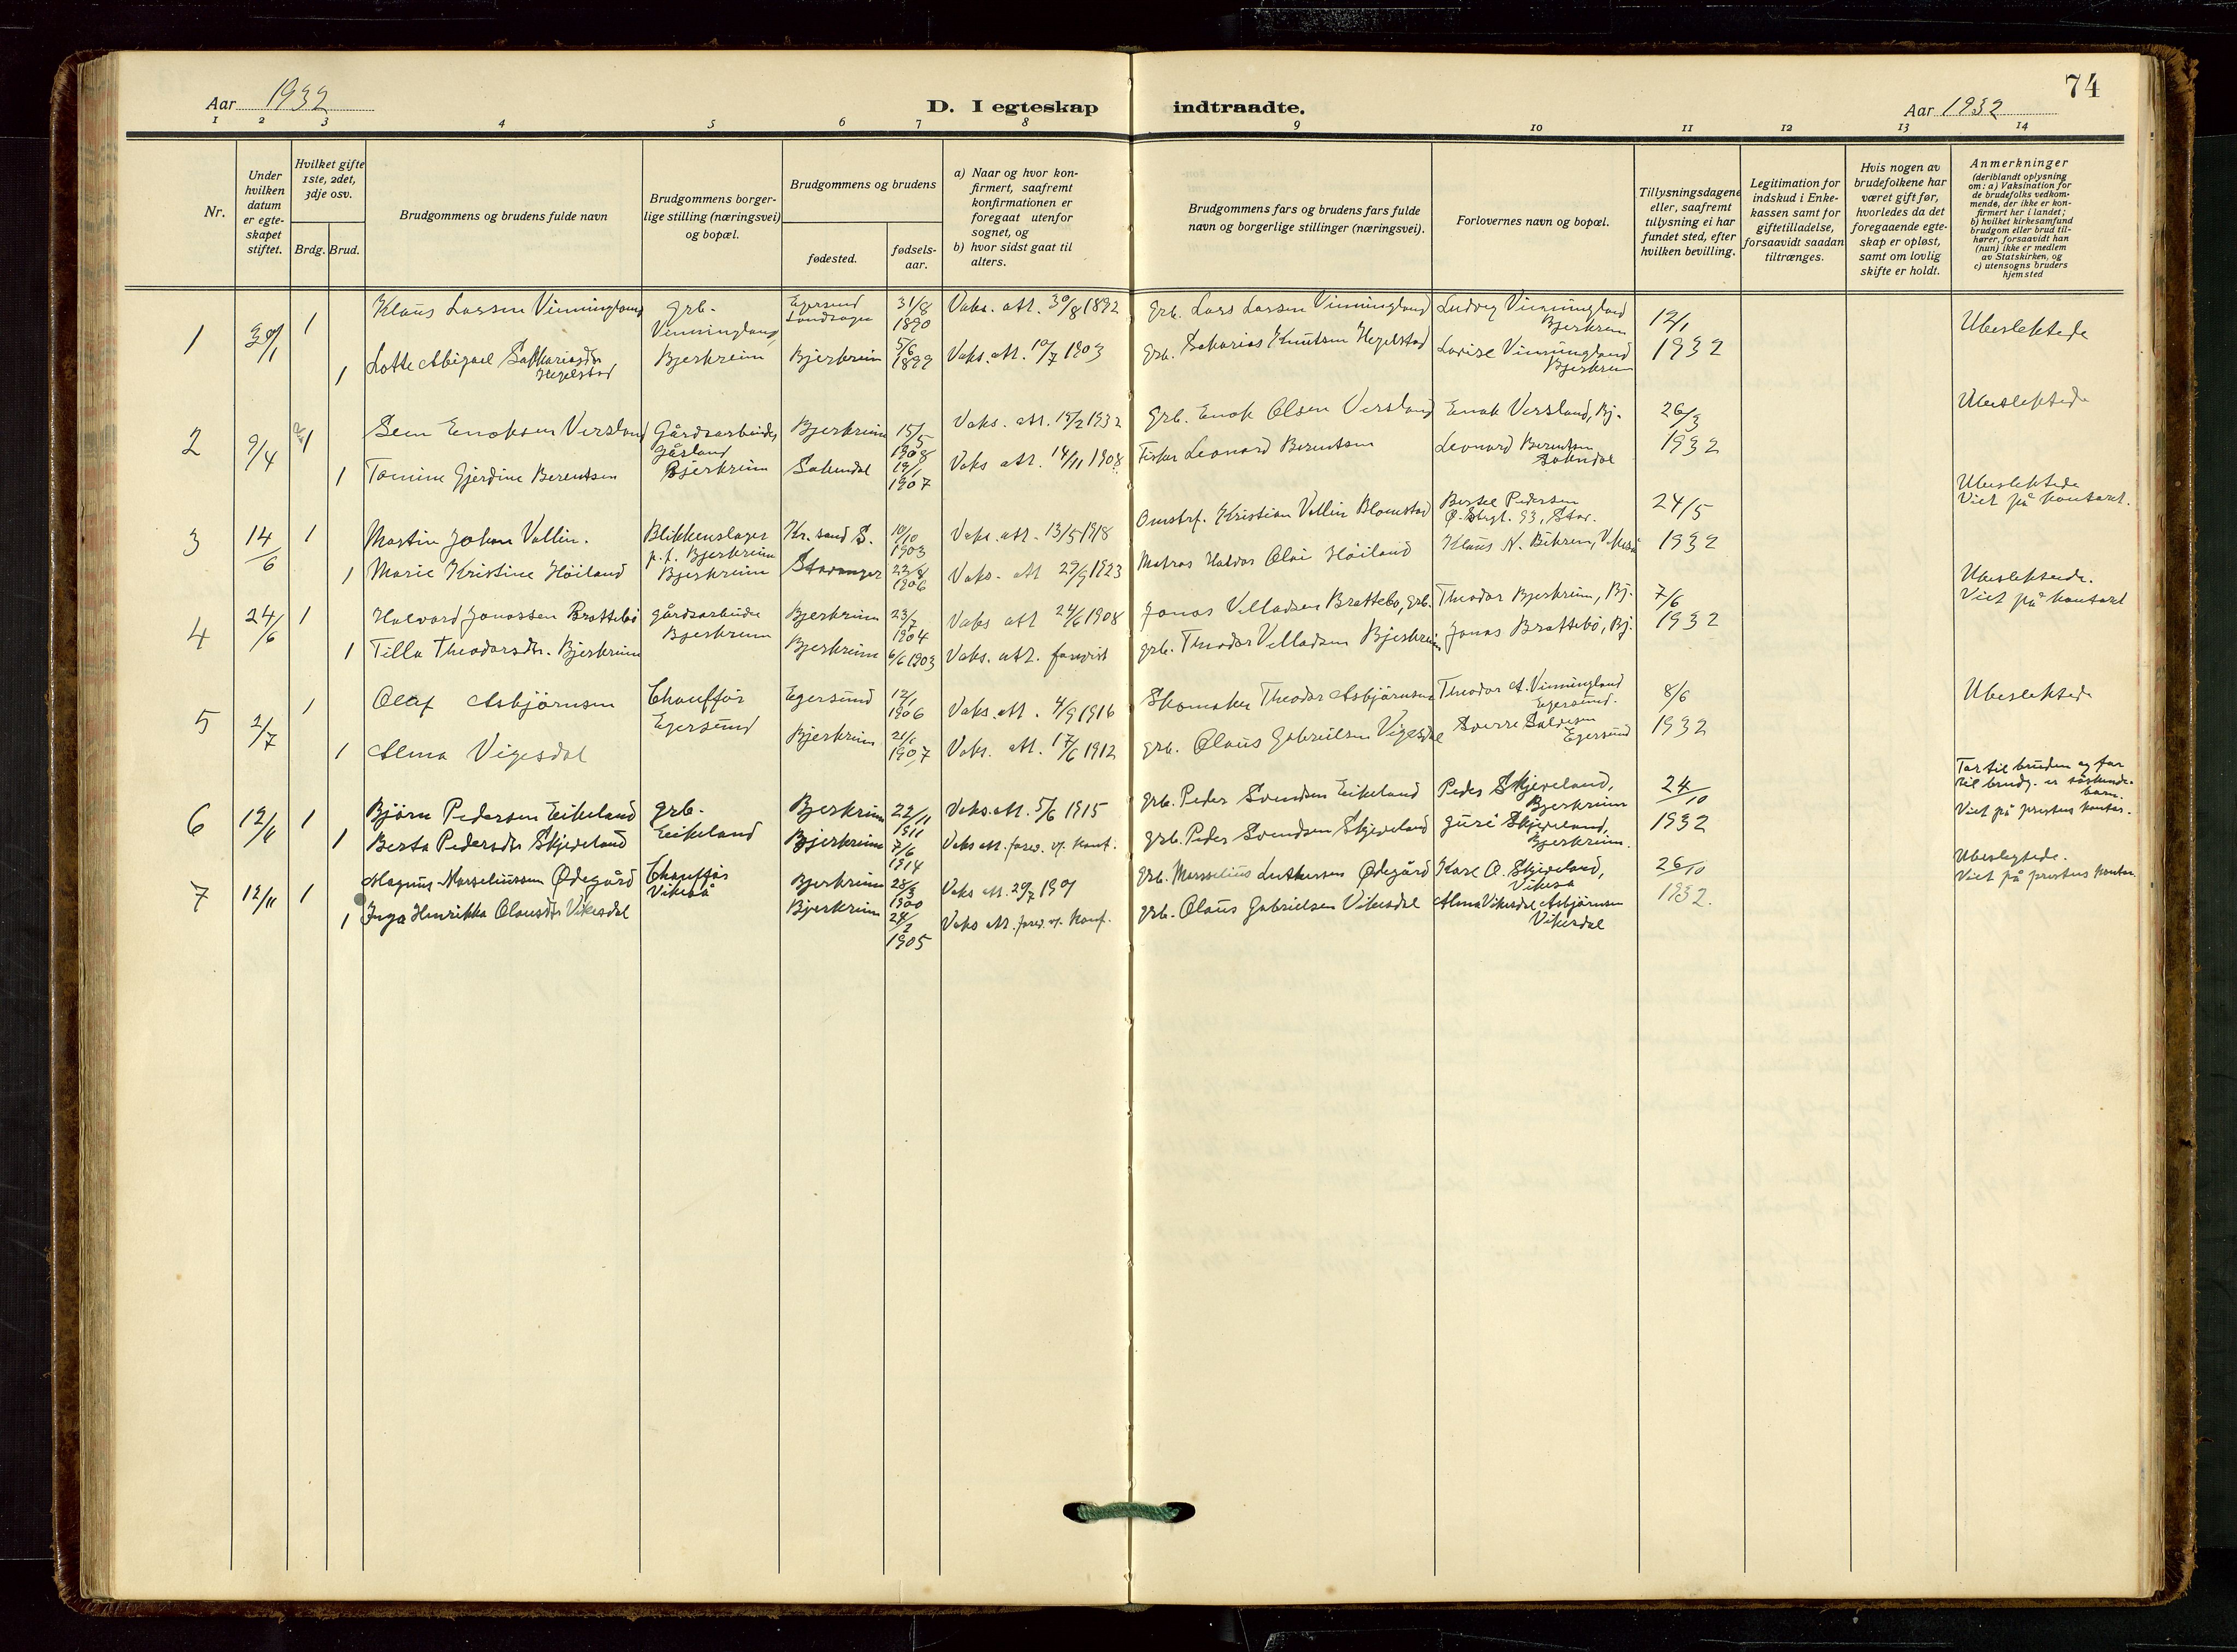 74
Aar 1932
D. I egteskap indtraadte.
Aar 1932
1 2 3 4 5 6 7 8 9 10 11 12 13 14
Nr.
Under hvilken datum er egte-skapet stiftet.
Hvilket gifte 1ste, 2det, 3dje osv.
Brdg. Brud.
Brudgommens og brudens fulde navn
Brudgommens borger-lige stilling (næringsvei) og bopæl.
Brudgommens og brudens
fødested.
fødsels-aar.
a) Naar og hvor kon-firmert, saafremt konfirmationen er foregaat utenfor sognet, og
b) hvor sidst gaat til alters.
Brudgommens fars og brudens fars fulde navn og borgerlige stillinger (næringsvei).
Forlovernes navn og bopæl.
Tillysningsdagene eller, saafremt tillysning ei har fundet sted, efter hvilken bevilling.
Legitimation for indskud i Enke-kassen samt for giftetilladelse, forsaavidt saadan tiltrænges.
Hvis nogen av brudefolkene har været gift før, hvorledes da det foregaaende egte-skap er opløst, samt om lovlig skifte er holdt.
Anmerkninger (deriblandt oplysning om: a) Vaksination for de brudefolks vedkom-mende, der ikke er kon-firmert her i landet; b) hvilket kirkesamfund brudgom eller brud til-hører, forsaavidt han (hun) ikke er medlem av Statskirken, og c) utensogns bruders hjemsted
1 30/1 1 Klaus Larsen Vinningland grb. Vinningland Egersund Landsogn 31/8 1890 Vaks. att. 30/8 1892 Grb. Lars Larsen Vinningland Ludvig Vinningland Bjerkreim 12/1 Ubeslektede
1 Lotte Abigael Sakkariasdtr Hegelstad Bjerkreim Bjerkreim 5/6 1899 Vaks. att. 10/7 1903 Grb. Sakarias Knutsen Hegelstad Lovise Vinningland Bjerkreim 1932
2 9/4 1 Sem Enoksen Versland Gårdsarbeider Gåsland Bjerkreim 15/5 1908 Vaks. att. 15/2 1932 Grb. Enok Olsen Versland Enok Versland, Bj. 26/3 Ubeslektede
1 Tomine Gjerdine Berentsen Bjerkreim Sokendal 19/1 1907 Vaks att. 14/11 1908 Fisker Leonard Berentsen Leonard Berentsen Sokndal 1932
3 14/6 1 Martin Johan Vallin. Blikkenslager p.t. Bjerkreim Kr.sand S. 10/10 1903 Vaks. att. 13/5 1918 Kristian Vallin Blomstad Bertel Pedersen Ø. Strgt. 93, Stav. 24/5 Ubeslektede Viet på kontoret.
1 Marie Kristine Høiland Bjerkreim Stavanger 22/8 1906 Vaks. att 29/9 1923 Matros Haldor Olai Høiland Klaus N. Bikren, Vikeså 1932
4 24/6 1 Halvard Jonassen Brattebø gårdsarbeider Bjerkreim Bjerkreim 23/7 1904 Vaks att 24/6 1908 Jonas Villadsen Brattebø, grb. Theodor Bjerkreim, Bj. 7/6 Ubeslektede. Viet på kontoret
1 Tilla Theodorsdtr. Bjerkreim Bjerkreim 6/6 1903 Vaks. att. forevist grb. Theodor Villadsen Bjerkreim Jonas Brattebø, Bj. 1932
5 2/7 1 Olaf Asbjørnsen Chauffør Egersund Egersund 12/1 1906 Vaks. att. 4/9 1916 Skomaker Theodor Asbjørnsen Theodor A. Vinningland Egersund. 8/6 Ubeslektede
1 Alma Vigesdal Bjerkreim 21/6 1907 Vaks. att. 17/6 1912 grb. Olaus Gabrielsen Vigesdal Sverre Salvesen Egersund 1932
6 12/11 1 Bjørn Pedersen Eikeland grb. Eikeland Bjerkreim 22/11 1911 Vaks. att. 5/6 1915 grb. Peder Svendsen Eikeland Peder Skjeveland, Bjerkreim 24/10 Far til bruden og far til brudg. er søskende-barn. Viet på prestens kontor.
1 Berta Pedersdtr Skjeveland Bjerkreim 7/6 1914 Vaks att. forev. v. konf. grb. Peder Svendsen Skjeveland Guri Skjeveland, Bjerkreim. 1932
7 12/11 1 Magnus Marseliussen Ødegård Chauffør Vikeså Bjerkreim 28/3 1900 Vaks att. 20/7 1901 grb. Marselius Luthersen Ødegård Kare O. Skjeveland, Vikeså 26/10 Ubeslegtede. Viet på prestens kontor.
1 Inga Henrikka Olausdtr Vikesdal Bjerkreim 24/2 1905 Vaks att. forev. v. konf. grb. Olaus Gabrielsen Vikesdal Alma Vikesdal Asbjørnsen Vikesdal 1932.